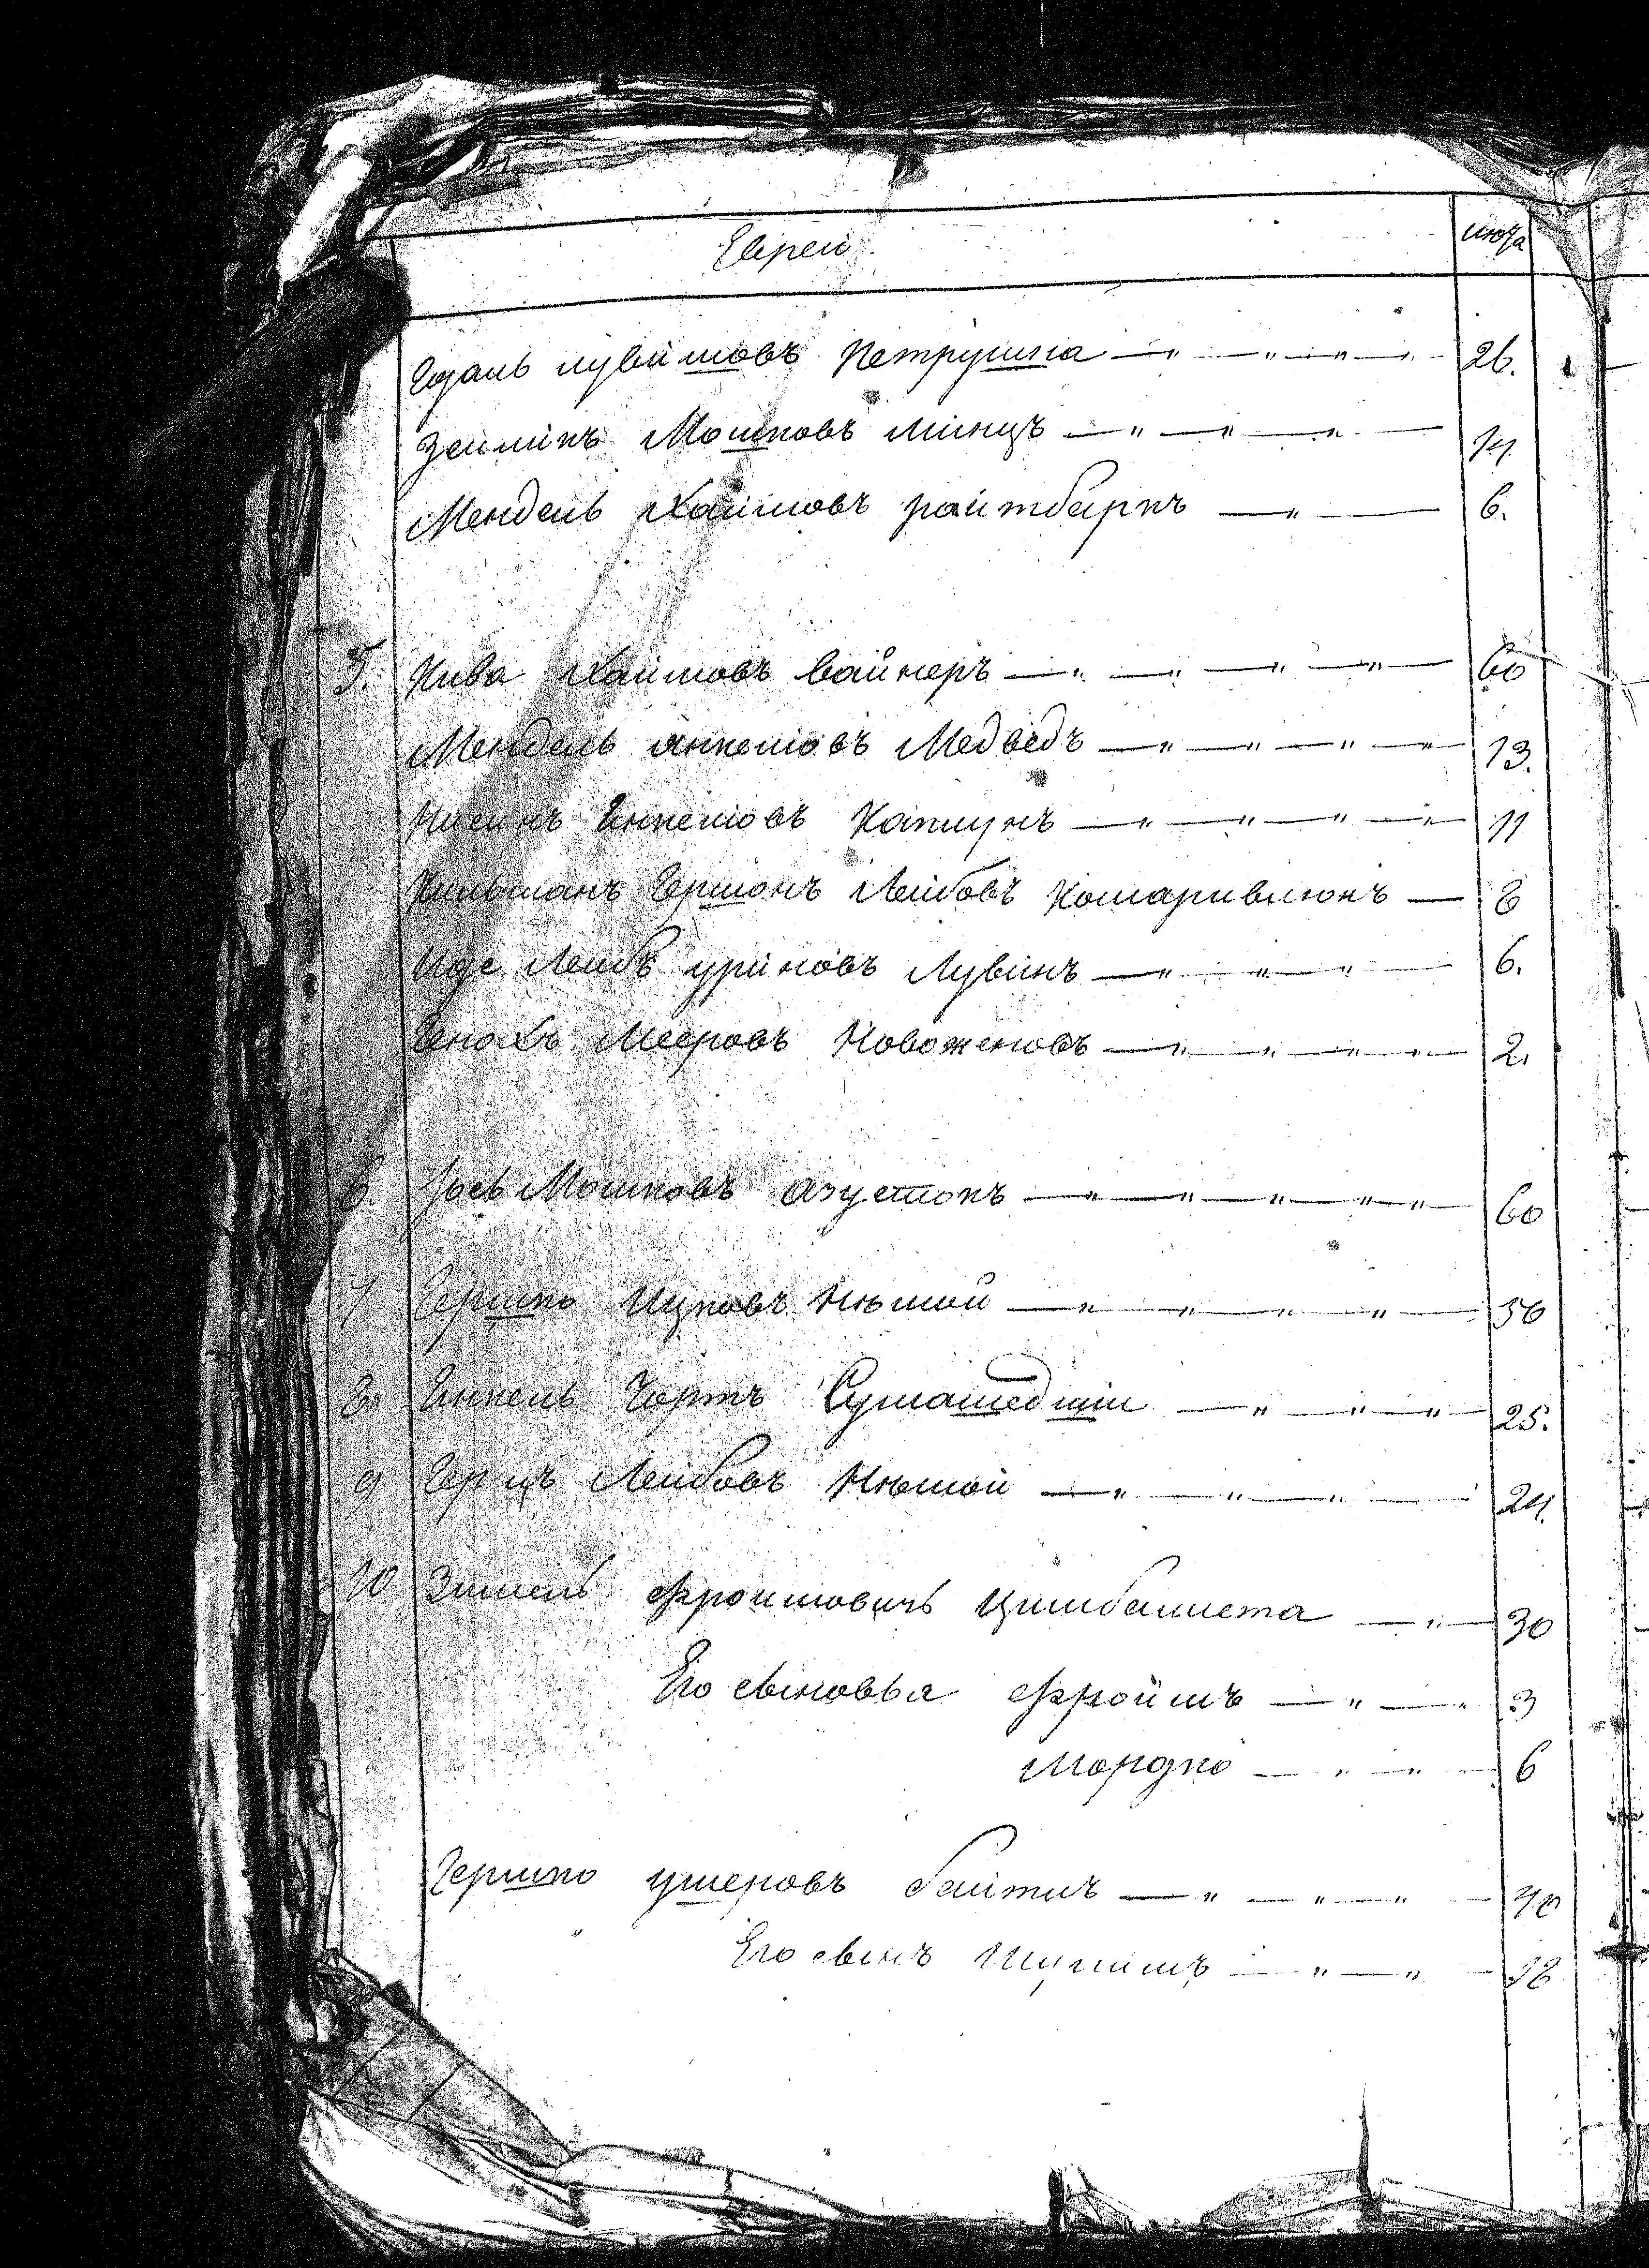 Евреи. лѣта
Іудаль Лувимовъ Петрушка — " — " — " — 26.
Зейликъ Мошковъ Минцъ — " — " — " — 14
Мендель Хаимовъ Райтбаркъ — " — 6.
5. Кива Хаимовъ Вайнеръ — " — " — " — " — 60
Мендель Янкелювъ Медвѣдъ — " — " — " — " — 13.
Нисинъ Янкелювъ Капщукъ — " — " — " — " — 11
Кильманъ Гершонъ Лейбовъ — 8
Иде Лейбъ Лувинъ — " — " — " — 6.
Генохъ Мееровъ Новоженовъ — " — " — " — " — 2.
6. Іось Мошковъ — " — " — " — " — " — 60
7 Гершко Ицковъ Нѣмой — " — " — " — " — 50
8. Янкель Чортъ Сумашедшій — " — " — " — 25.
9 Герцъ Лейбовъ Нѣмой — " — " — " — 24.
10 Зимель Фроимовичъ Цимбалиста — " — 30
Его сыновья Фроймъ — " — " 3
Мордко — " — " — 6
Гершко Ушеровъ — " — " — " — 40
" Его сынъ — " — " — 18